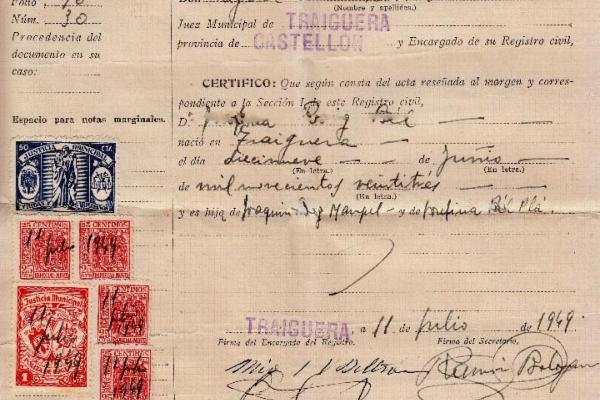 Folio
Núm. 30
Procedencia del
documento en su
caso:
Espacio para notas marginales.
Don
(Nombre y apellidos.)
Juez Municipal de TRAIGUERA
provincia de CASTELLON y Encargado de su Registro civil,
CERTIFICO: Que según consta del acta reseñada al margen y corres-
pondiente a la Sección I de este Registro civil,
D.ª Josefina
nació en Traiguera
el día diecinueve de Junio
(En letra.) (En letra.)
de mil novecientos veintitrés
(En letra.)
y es hija de Joaquin y de Josefina Plá.
TRAIGUERA a 11 de Julio de 1949.
Firma del Encargado del Registro. Firma del Secretario.
50 CTS
JUSTICIA MUNICIPAL
11 Julio 1949
Justicia Municipal
11 Julio 1949
1
11 Julio 1949
11 Julio 1949